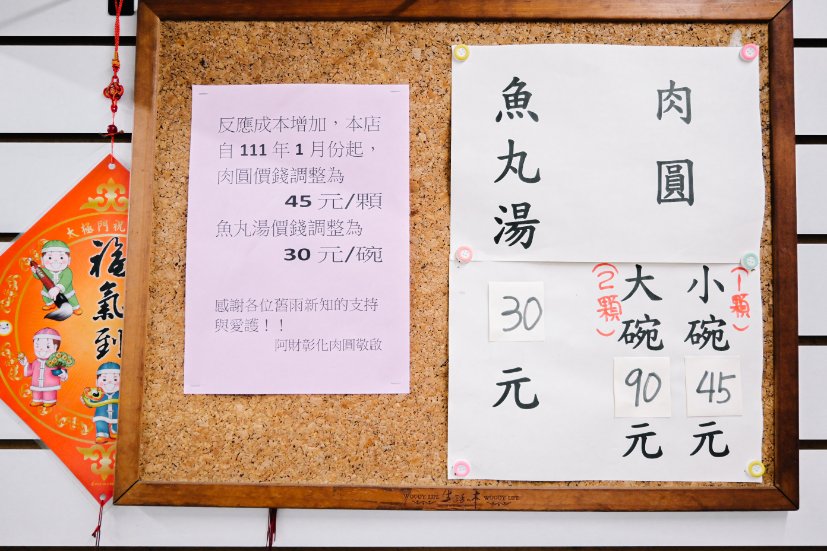 反應成本增加，本店
自 111 年 1 月份起，
肉圓價錢調整為
45 元/顆
魚丸湯價錢調整為
30 元/碗
感謝各位舊雨新知的支持
與愛護！！
阿財彰化肉圓敬啟
肉圓
小碗(1顆)
45元
大碗(2顆)
90元
魚丸湯
30元
福氣到
WOODY LIFE 生活木 WOODY LIFE